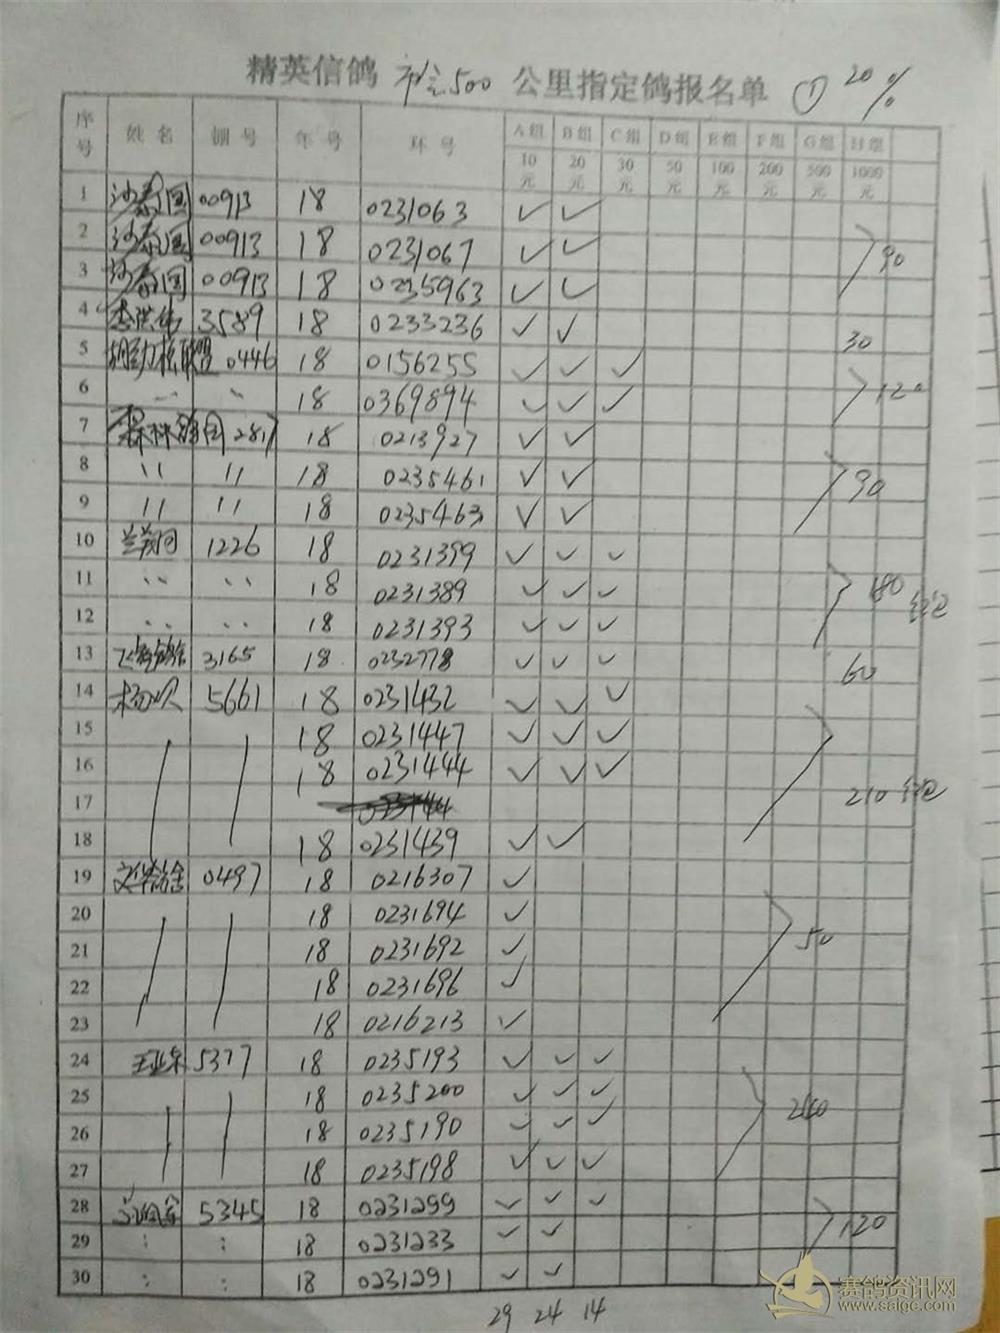 精英信鸽 市会500 公里指定鸽报名单 ① 20%
序号 姓名 棚号 年号 环号 A组 B组 C组 D组 E组 F组 G组 H组
10元 20元 30元 50元 100元 200元 500元 1000元
1 沙泰国 00913 18 0231063 ✓ ✓
2 沙泰国 00913 18 0231067 ✓ ✓ 90
3 沙泰国 00913 18 0235963 ✓ ✓
4 李洪伟 3589 18 0233236 ✓ ✓ 30
5 胡劲松联盟 0446 18 0156255 ✓ ✓ ✓
6 〃 〃 18 0369894 ✓ ✓ ✓ 120
7 霖林鸽园 2817 18 0213927 ✓ ✓
8 〃 〃 18 0235461 ✓ ✓ 90
9 〃 〃 18 0235463 ✓ ✓
10 1226 18 0231399 ✓ ✓ ✓
11 〃 〃 18 0231389 ✓ ✓ ✓ 180
12 〃 〃 18 0231393 ✓ ✓ ✓
13 3165 18 0232778 ✓ ✓ ✓ 60
14 5661 18 0231432 ✓ ✓ ✓
15 18 0231447 ✓ ✓ ✓
16 18 0231444 ✓ ✓ ✓
17 210
18 18 0231439 ✓ ✓
19 文华鸽舍 0497 18 0216307 ✓
20 18 0231694 ✓
21 18 0231692 ✓ 50
22 18 0231696 ✓
23 18 0216213 ✓
24 5377 18 0235193 ✓ ✓ ✓
25 18 0235200 ✓ ✓ ✓
26 18 0235190 ✓ ✓ ✓ 240
27 18 0235198 ✓ ✓ ✓
28 5345 18 0231299 ✓ ✓ ✓
29 : : 18 0231233 ✓ ✓ 120
30 : : 18 0231291 ✓ ✓
29 24 14
赛鸽资讯网
www.saige.com